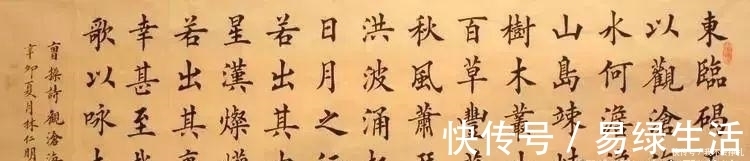 東臨碣
以觀滄
水何澹
山島竦
樹木叢
百草豐
秋風蕭
洪波涌
日月之
若出其
星漢燦
若出其
幸甚至
歌以咏
曹操詩觀滄海
辛卯夏月林仁明
快传号 / 易绿生活